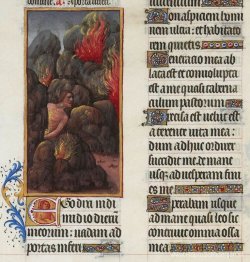 a. A porta inferi
Ego dixi in di
midio dierum
meorum: uadam ad
portas inferi
Non aspiciam homi
nem ultra: et habitato
rem quietis
Generatio mea ab
lata est et conuoluta
est a me quasi taberna
culum pastorum
Precisa est uelut
a texente uita mea:
dum adhuc ordirer
succidit me de mane
usque ad uesperam fini
es me
Sperabam usque
ad mane quasi leo sic
contriuit omnia ossa
mea